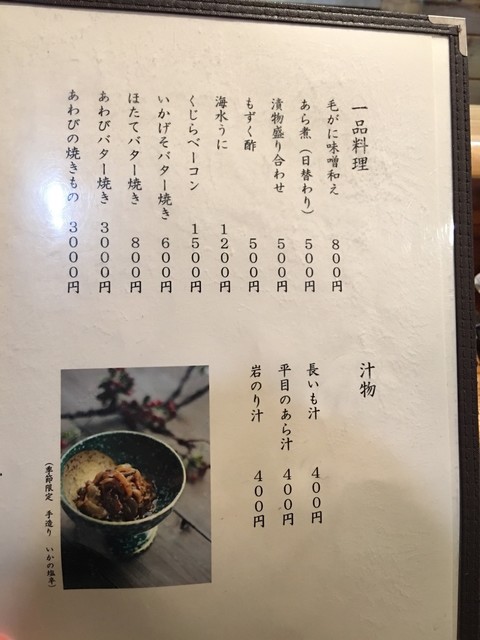 一品料理
毛がに味噌和え 800円
あら煮(日替わり) 500円
漬物盛り合わせ 500円
もずく酢 500円
海水うに 1200円
くじらベーコン 1500円
いかげそバター焼き 600円
ほたてバター焼き 800円
あわびバター焼き 3000円
あわびの焼きもの 3000円
汁物
長いも汁 400円
平目のあら汁 400円
岩のり汁 400円
(季節限定 手造り いかの塩辛)